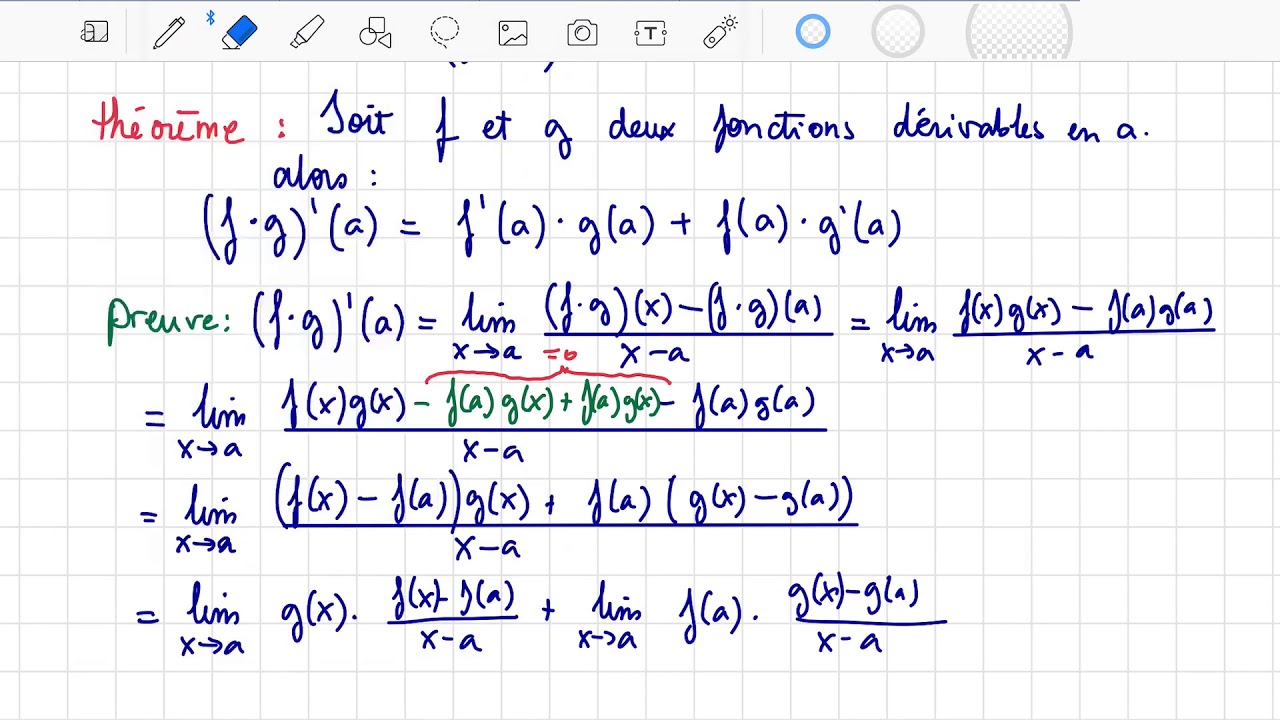 théorème : Soit f et g deux fonctions dérivables en a.
alors :
(f·g)'(a) = f'(a)·g(a) + f(a)·g'(a)
preuve: (f·g)'(a) = lim x→a ((f·g)(x) − (f·g)(a)) / (x−a) = lim x→a (f(x)g(x) − f(a)g(a)) / (x−a)
=0
= lim x→a (f(x)g(x) − f(a)g(x) + f(a)g(x) − f(a)g(a)) / (x−a)
= lim x→a ((f(x) − f(a))g(x) + f(a)(g(x) − g(a))) / (x−a)
= lim x→a g(x)· (f(x) − f(a)) / (x−a) + lim x→a f(a)· (g(x) − g(a)) / (x−a)